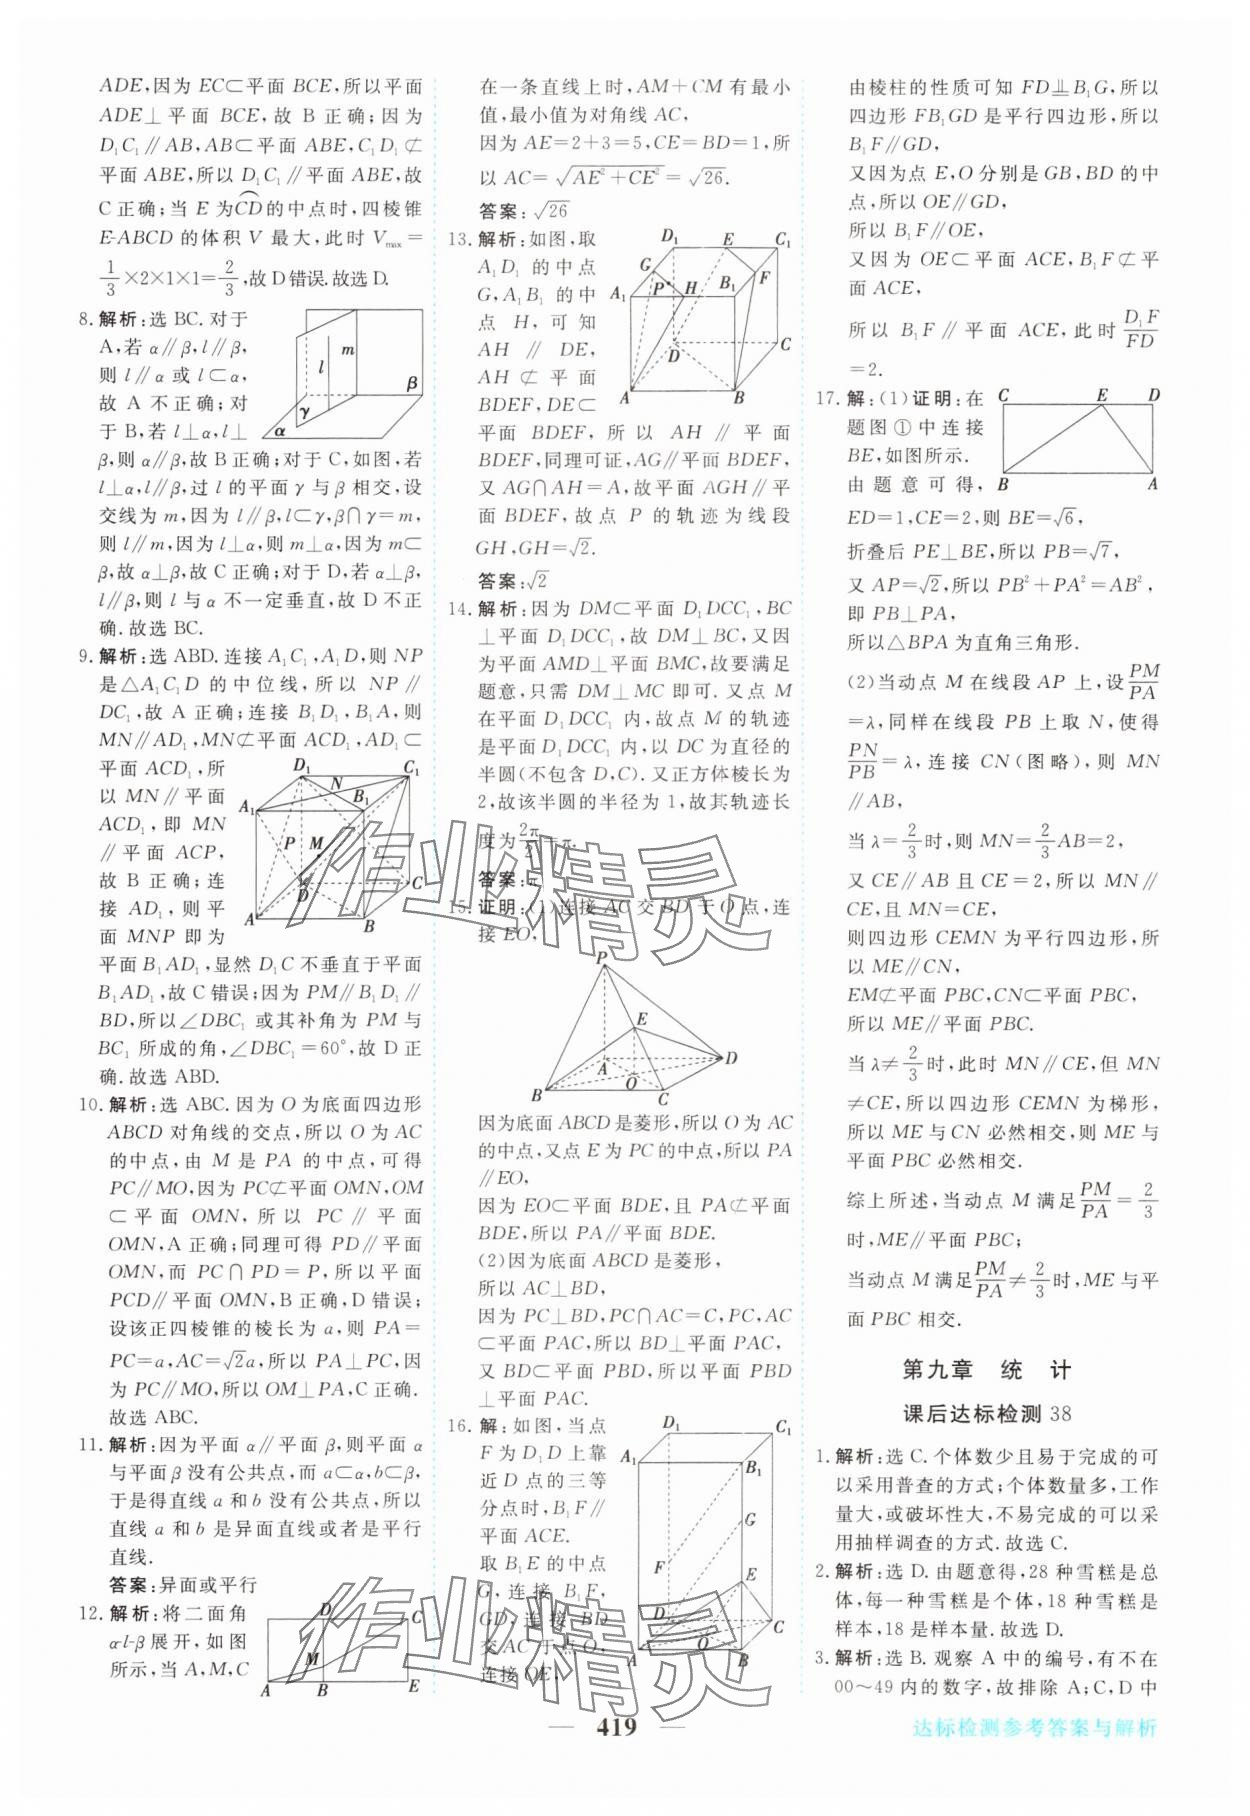 ADE,因为 EC⊂平面 BCE,所以平面
ADE⊥平面 BCE,故 B 正确;因为
D₁C₁∥AB,AB⊂平面 ABE,C₁D₁⊄
平面 ABE,所以 D₁C₁∥平面 ABE,故
C 正确;当 E 为CD的中点时,四棱锥
E-ABCD 的体积 V 最大,此时 Vmax=
1/3×2×1×1=2/3,故 D 错误.故选 D.
8. 解析:选 BC.对于
A,若 α∥β,l∥β,
则 l∥α 或 l⊂α,
故 A 不正确;对
于 B,若 l⊥α,l⊥
β,则 α∥β,故 B 正确;对于 C,如图,若
l⊥α,l∥β,过 l 的平面 γ 与 β 相交,设
交线为 m,因为 l∥β,l⊂γ,β∩γ=m,
则 l∥m,因为 l⊥α,则 m⊥α,因为 m⊂
β,故 α⊥β,故 C 正确;对于 D,若 α⊥β,
l∥β,则 l 与 α 不一定垂直,故 D 不正
确.故选 BC.
l m β γ α
9. 解析:选 ABD.连接 A₁C₁,A₁D,则 NP
是△A₁C₁D 的中位线,所以 NP∥
DC₁,故 A 正确;连接 B₁D₁,B₁A,则
MN∥AD₁,MN⊄平面 ACD₁,AD₁⊂
平面 ACD₁,所
以 MN∥平面
ACD₁,即 MN
∥平面 ACP,
故 B 正确;连
接 AD₁,则平
面 MNP 即为
平面 B₁AD₁,显然 D₁C 不垂直于平面
B₁AD₁,故 C 错误;因为 PM∥B₁D₁∥
BD,所以∠DBC₁ 或其补角为 PM 与
BC₁ 所成的角,∠DBC₁=60°,故 D 正
确.故选 ABD.
D₁ C₁ N A₁ B₁ P M D C A B
10. 解析:选 ABC.因为 O 为底面四边形
ABCD 对角线的交点,所以 O 为 AC
的中点,由 M 是 PA 的中点,可得
PC∥MO,因为 PC⊄平面 OMN,OM
⊂平面 OMN,所以 PC∥平面
OMN,A 正确;同理可得 PD∥平面
OMN,而 PC∩PD=P,所以平面
PCD∥平面 OMN,B 正确,D 错误;
设该正四棱锥的棱长为 a,则 PA=
PC=a,AC=√2a,所以 PA⊥PC,因
为 PC∥MO,所以 OM⊥PA,C 正确.
故选 ABC.
11. 解析:因为平面 α∥平面 β,则平面 α
与平面 β 没有公共点,而 a⊂α,b⊂β,
于是得直线 a 和 b 没有公共点,所以
直线 a 和 b 是异面直线或者是平行
直线.
答案:异面或平行
12. 解析:将二面角
α-l-β 展开,如图
所示,当 A,M,C
D C M A B E
在一条直线上时,AM+CM 有最小
值,最小值为对角线 AC,
因为 AE=2+3=5,CE=BD=1,所
以 AC=√(AE²+CE²)=√26.
答案:√26
13. 解析:如图,取
A₁D₁ 的中点
G,A₁B₁ 的中
点 H,可知
AH∥DE,
AH⊄平面
BDEF,DE⊂
平面 BDEF,所以 AH∥平面
BDEF,同理可证,AG∥平面 BDEF,
又 AG∩AH=A,故平面 AGH∥平
面 BDEF,故点 P 的轨迹为线段
GH,GH=√2.
D₁ E C₁ G F P H A₁ B₁ D C A B
答案:√2
14. 解析:因为 DM⊂平面 D₁DCC₁,BC
⊥平面 D₁DCC₁,故 DM⊥BC,又因
为平面 AMD⊥平面 BMC,故要满足
题意,只需 DM⊥MC 即可.又点 M
在平面 D₁DCC₁ 内,故点 M 的轨迹
是平面 D₁DCC₁ 内,以 DC 为直径的
半圆(不包含 D,C).又正方体棱长为
2,故该半圆的半径为 1,故其轨迹长
度为2π/2=π.
答案:π
15. 证明:(1)连接 AC 交 BD 于 O 点,连
接 EO,
P E A D O B C
因为底面 ABCD 是菱形,所以 O 为 AC
的中点,又点 E 为 PC 的中点,所以 PA
∥EO,
因为 EO⊂平面 BDE,且 PA⊄平面
BDE,所以 PA∥平面 BDE.
(2)因为底面 ABCD 是菱形,
所以 AC⊥BD,
因为 PC⊥BD,PC∩AC=C,PC,AC
⊂平面 PAC,所以 BD⊥平面 PAC,
又 BD⊂平面 PBD,所以平面 PBD
⊥平面 PAC.
16. 解:如图,当点
F 为 D₁D 上靠
近 D 点的三等
分点时,B₁F∥
平面 ACE.
取 B₁E 的中点
G,连接 B₁F,
GD,连接 BD
交 AC 于点 O,
连接 OE,
D₁ C₁ A₁ B₁ G F E D C O A B
由棱柱的性质可知 FD⫫B₁G,所以
四边形 FB₁GD 是平行四边形,所以
B₁F∥GD,
又因为点 E,O 分别是 GB,BD 的中
点,所以 OE∥GD,
所以 B₁F∥OE,
又因为 OE⊂平面 ACE,B₁F⊄平
面 ACE,
所以 B₁F∥平面 ACE,此时D₁F/FD
=2.
17. 解:(1)证明:在
题图①中连接
BE,如图所示.
由题意可得,
ED=1,CE=2,则 BE=√6,
折叠后 PE⊥BE,所以 PB=√7,
又 AP=√2,所以 PB²+PA²=AB²,
即 PB⊥PA,
所以△BPA 为直角三角形.
C E D B A
(2)当动点 M 在线段 AP 上,设PM/PA
=λ,同样在线段 PB 上取 N,使得
PN/PB=λ,连接 CN(图略),则 MN
∥AB,
当 λ=2/3时,则 MN=2/3AB=2,
又 CE∥AB 且 CE=2,所以 MN∥
CE,且 MN=CE,
则四边形 CEMN 为平行四边形,所
以 ME∥CN,
EM⊄平面 PBC,CN⊂平面 PBC,
所以 ME∥平面 PBC.
当 λ≠2/3时,此时 MN∥CE,但 MN
≠CE,所以四边形 CEMN 为梯形,
所以 ME 与 CN 必然相交,则 ME 与
平面 PBC 必然相交.
综上所述,当动点 M 满足PM/PA=2/3
时,ME∥平面 PBC;
当动点 M 满足PM/PA≠2/3时,ME 与平
面 PBC 相交.
第九章 统 计
课后达标检测 38
1. 解析:选 C.个体数少且易于完成的可
以采用普查的方式;个体数量多,工作
量大,或破坏性大,不易完成的可以采
用抽样调查的方式.故选 C.
2. 解析:选 D.由题意得,28 种雪糕是总
体,每一种雪糕是个体,18 种雪糕是
样本,18 是样本量.故选 D.
3. 解析:选 B.观察 A 中的编号,有不在
00~49 内的数字,故排除 A;C,D 中
作业精灵
作业精灵
419
达标检测参考答案与解析